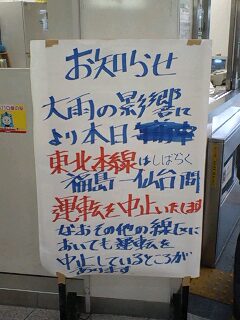 お知らせ
大雨の影響に
より本日
東北本線はしばらく
福島ー仙台間
運転を中止いたします
なおその他の線区に
おいても運転を
中止しているところが
あります